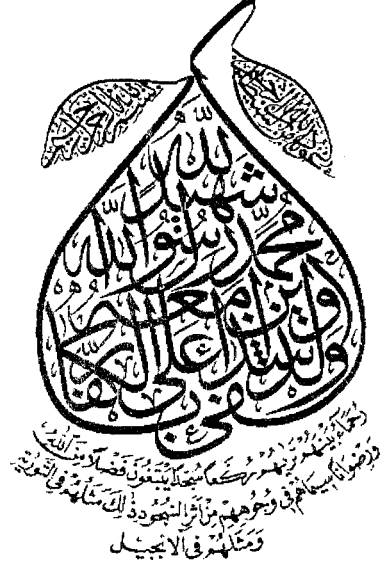 بسم الله الرحمن الرحيم
وكفى بالله شهيدا
محمد رسول الله
والذين معه
أشداء على الكفار
رحماء بينهم تريهم ركعا سجدا يبتغون فضلا من الله
ورضوانا سيماهم في وجوههم من أثر السجود ذلك مثلهم في التورية
ومثلهم في الانجيل